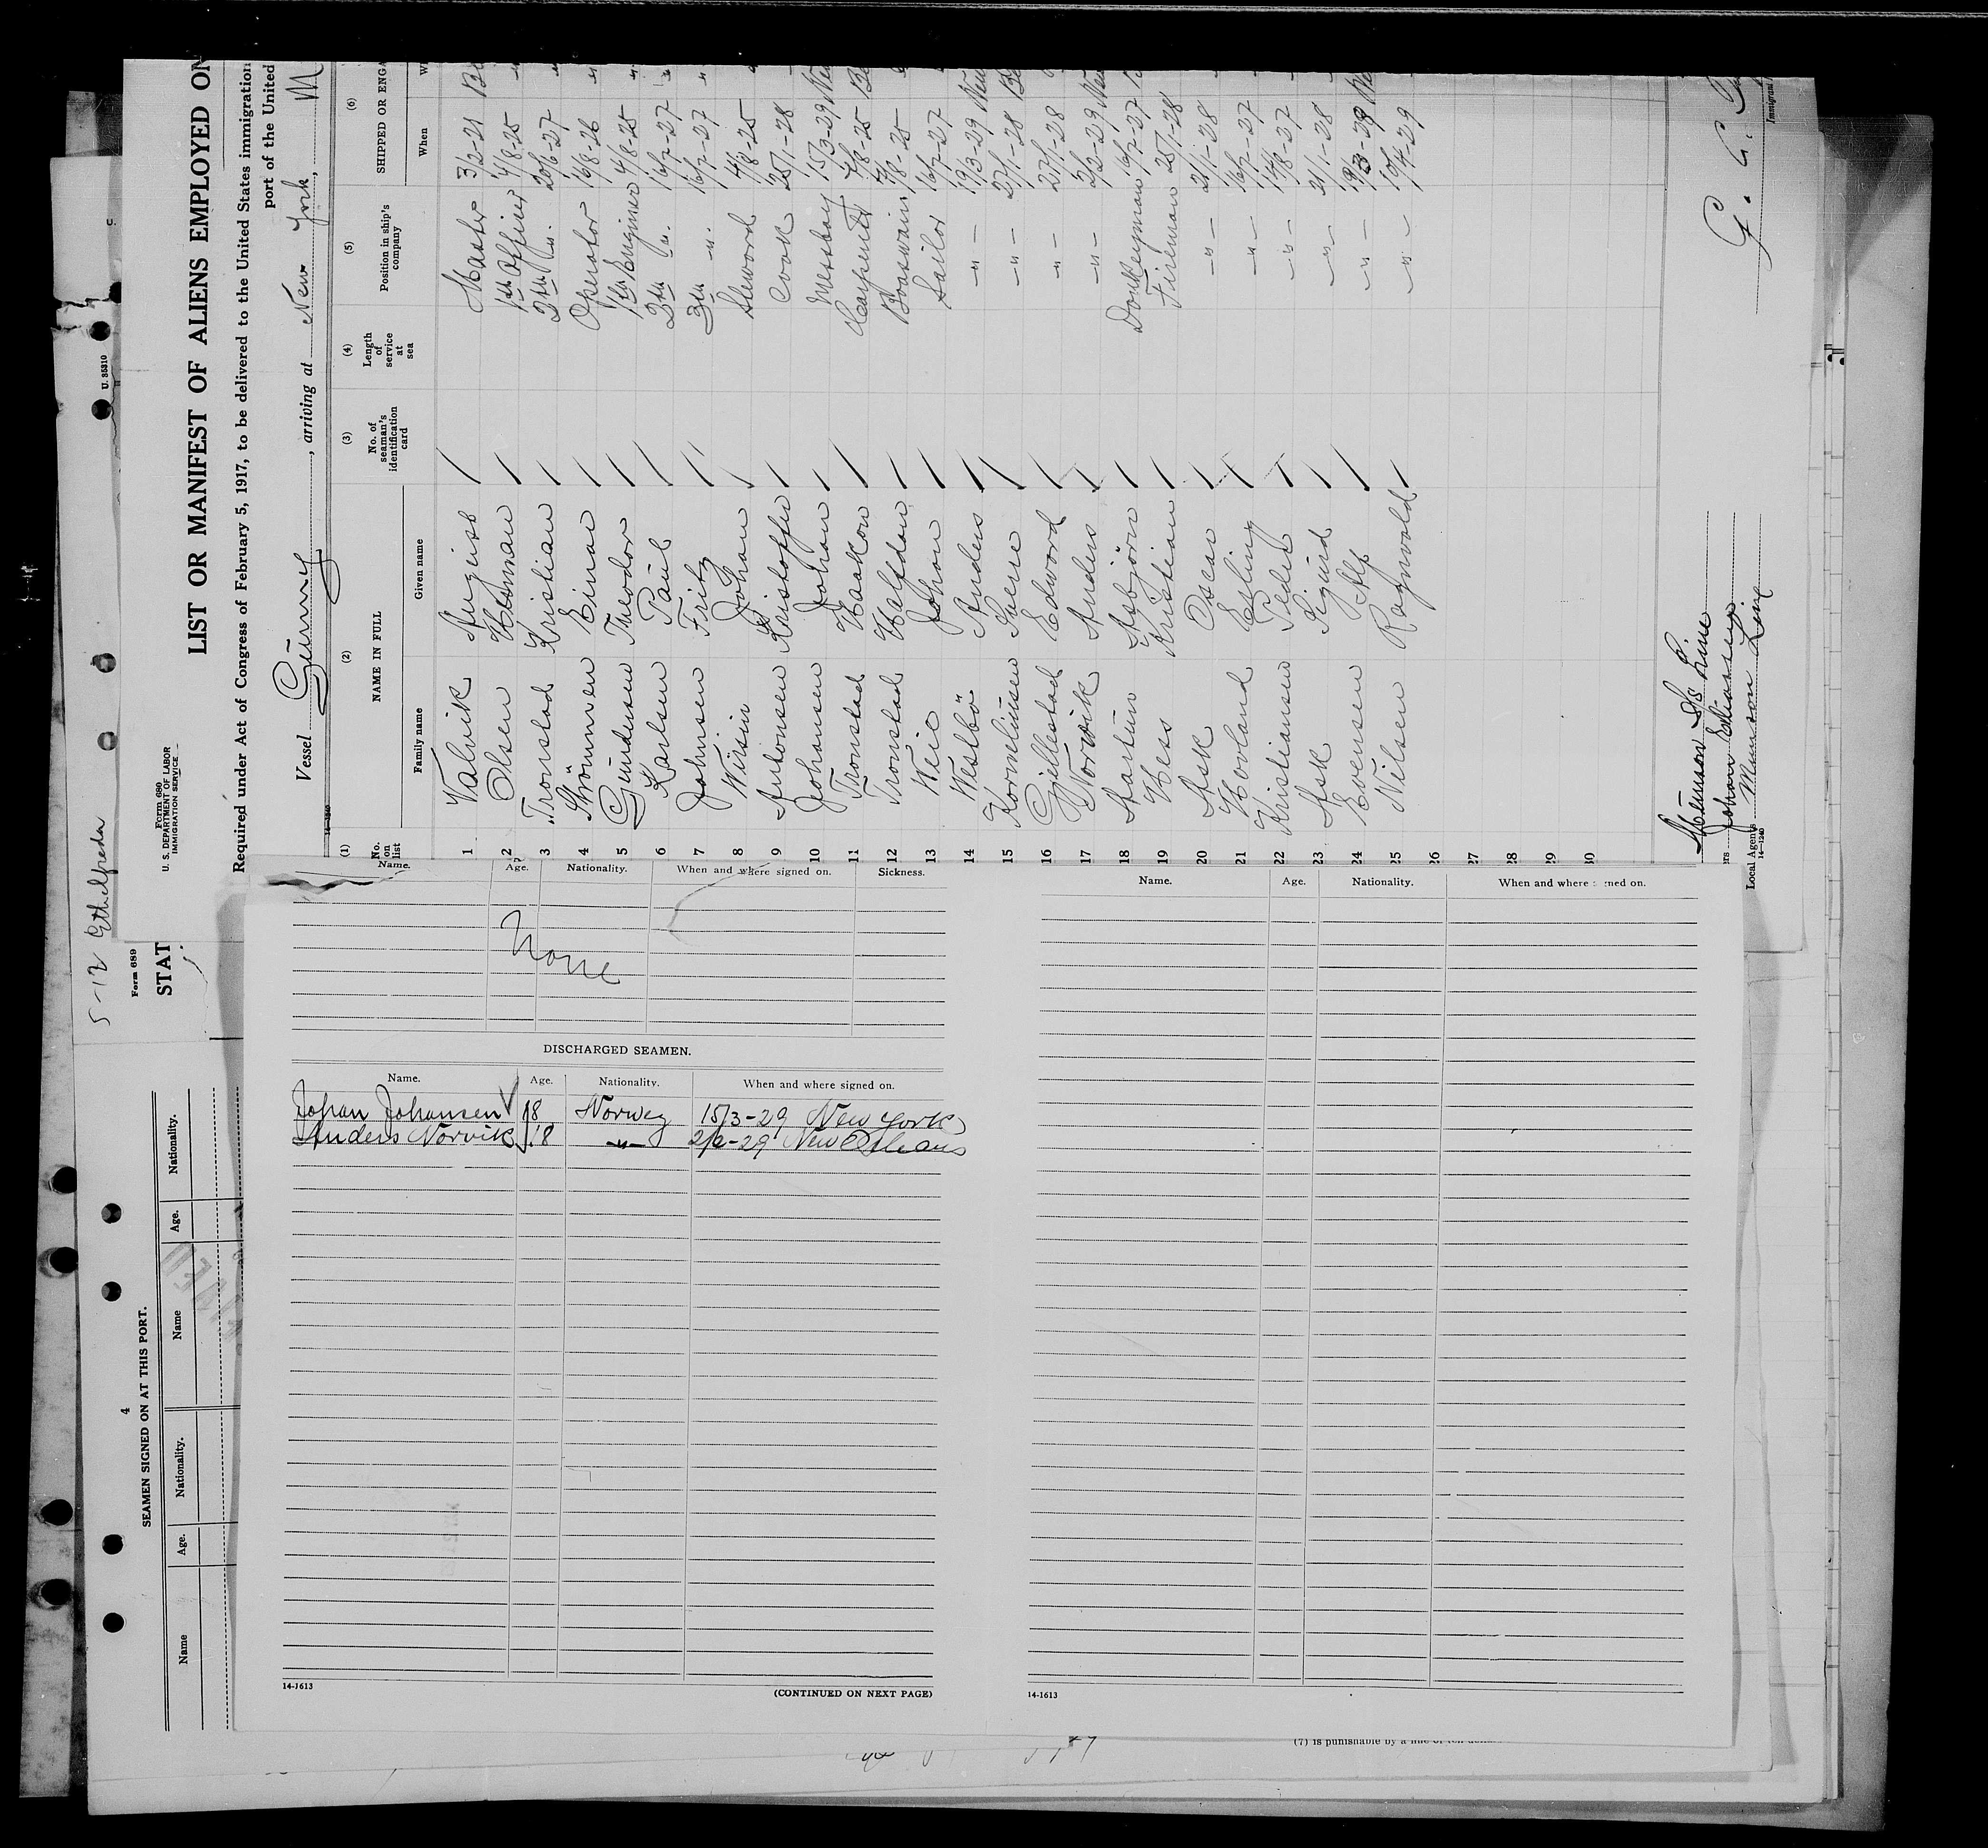 5-12 Ethelfreda
U. 85310
Form 689
STAT
Form 680
U. S. DEPARTMENT OF LABOR
IMMIGRATION SERVICE
LIST OR MANIFEST OF ALIENS EMPLOYED ON
Required under Act of Congress of February 5, 1917, to be delivered to the United States immigration
port of the United
Vessel Gunny, arriving at New York,
(1) (2) (3) (4) (5) (6)
No. on list NAME IN FULL No. of seaman's identification card Length of service at sea Position in ship's company SHIPPED OR ENGA
Family name Given name When
1 Valvik Master 3/2-21
2 Olsen Herman 1th Officer 4/8-25
3 Tronstad Kristian 2th -"- 20/6-27
4 Strömmen Einar Operator 16/8-26
5 Gundersen Theodor 1th Engineer 4/8-25
6 Karlsen Paul 2th -"- 16/7-27
7 Johnsen Fritz 3th -"- 16/7-27
8 Johan Steword 4/8-25
9 Antonsen Kristoffer Cook 25/1-28
10 Johansen Johan Messboy 15/3-29
11 Tronstad Haakon Carpenter 4/8-25
12 Tronstad Halfdan Boatswain
13 Johan Sailor 16/7-27
14 Westbö Anders -"- 19/3-29
15 Korneliusen Sverre -"- 27/1-28
16 Gjillestad Edword -"- 27/1-28
17 Norvik Anders -"- 2/2-29
18 Aartun Asbjörn Donkeyman 16/7-27
19 Hess Kristian Fireman 25/1-28
20 Ask Oscar -"- 21/1-28
21 Hovland Erling -"- 16/7-27
22 Kristiansen Peder -"- 14/8-27
23 Ask Sigurd -"- 21/1-28
24 Evensen Alf -"- 19/3-29
25 Nilsen Ragnvald -"- 10/4-29
26
27
28
29
30
Munson S/S Line
Johan Eliassen
Local Agents Munson Line
14-1240
Name. Age. Nationality. When and where signed on. Sickness.
None
DISCHARGED SEAMEN.
Name. Age. Nationality. When and where signed on.
Johan Johansen 18 Norweg 15/3-29 New York
Anders Norvik 18 -"- 2/2-29 New Orleans
14-1613
(CONTINUED ON NEXT PAGE)
Name. Age. Nationality. When and where signed on.
14-1613
4
SEAMEN SIGNED ON AT THIS PORT.
Name Age. Nationality. Name Age. Nationality.
(7) is punishable by a